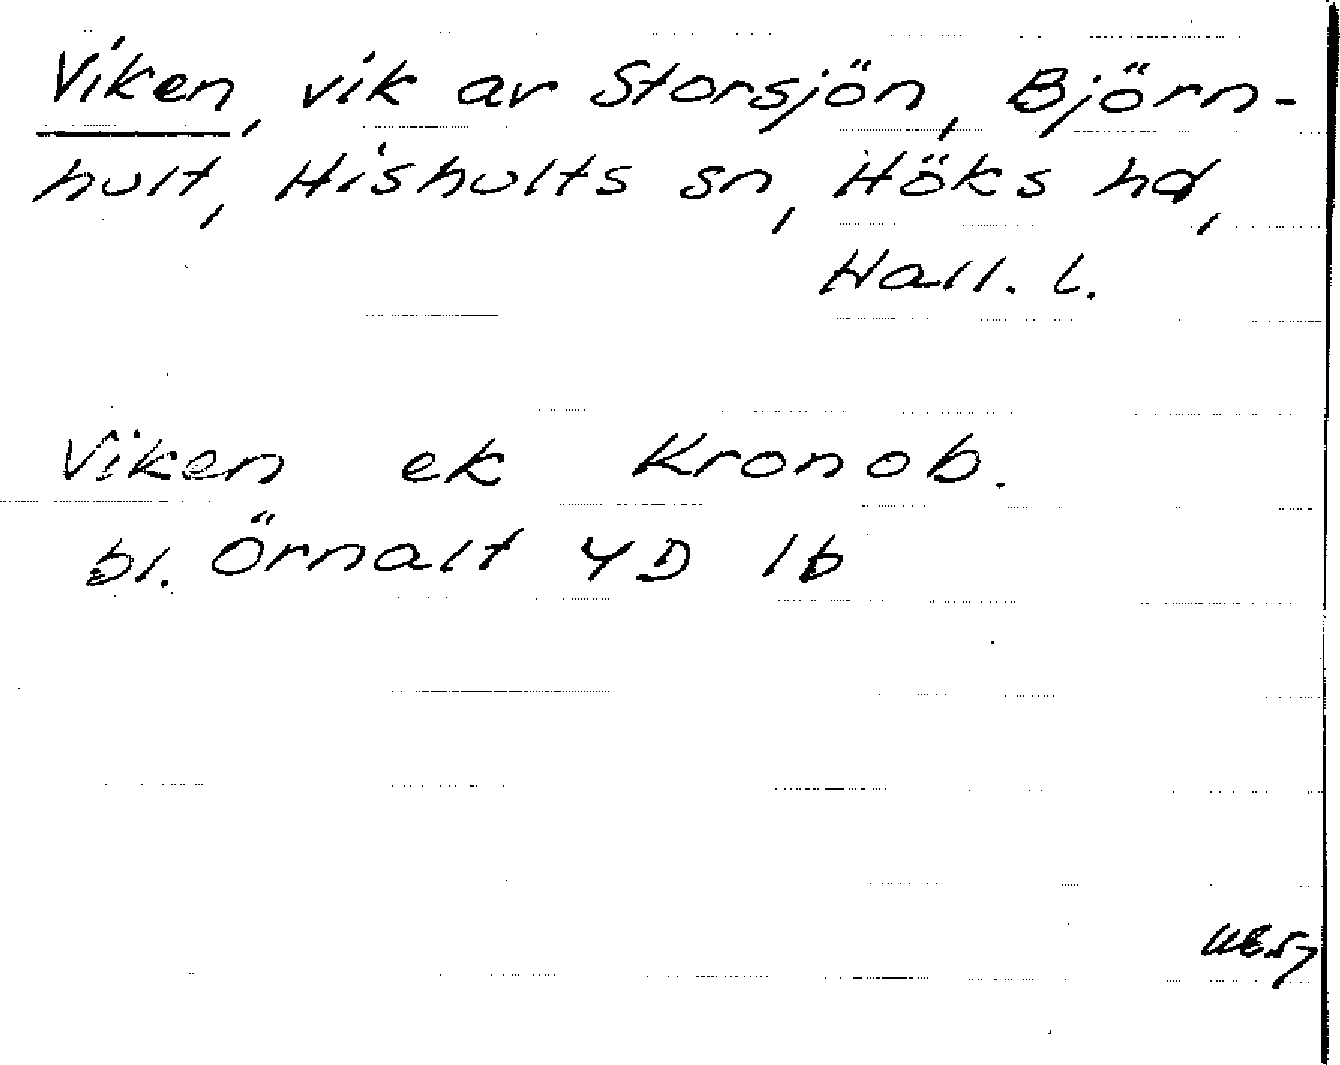 Viken, vik av Storsjön, Björn-
hult, Hishults sn, Höks hd,
Hall. l.
Viken ek Kronob.
bl. Örnalt 4D 1b